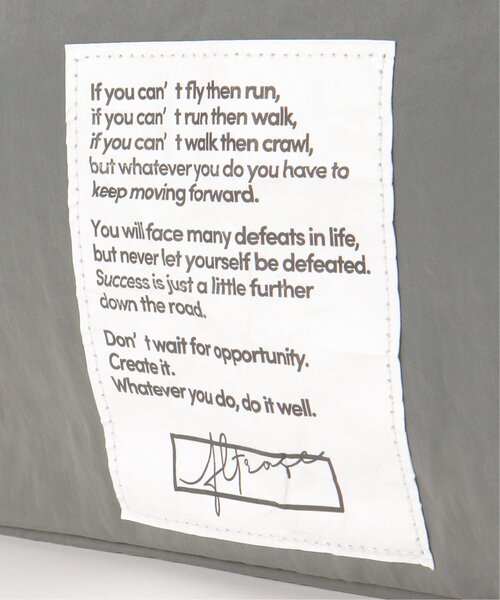 If you can’ t fly then run,
if you can’ t run then walk,
if you can’ t walk then crawl,
but whatever you do you have to
keep moving forward.
You will face many defeats in life,
but never let yourself be defeated.
Success is just a little further
down the road.
Don’ t wait for opportunity.
Create it.
Whatever you do, do it well.